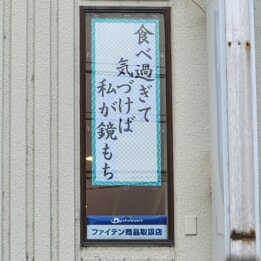 食べ過ぎて
気づけば
私が鏡もち
ファイテン商品取扱店